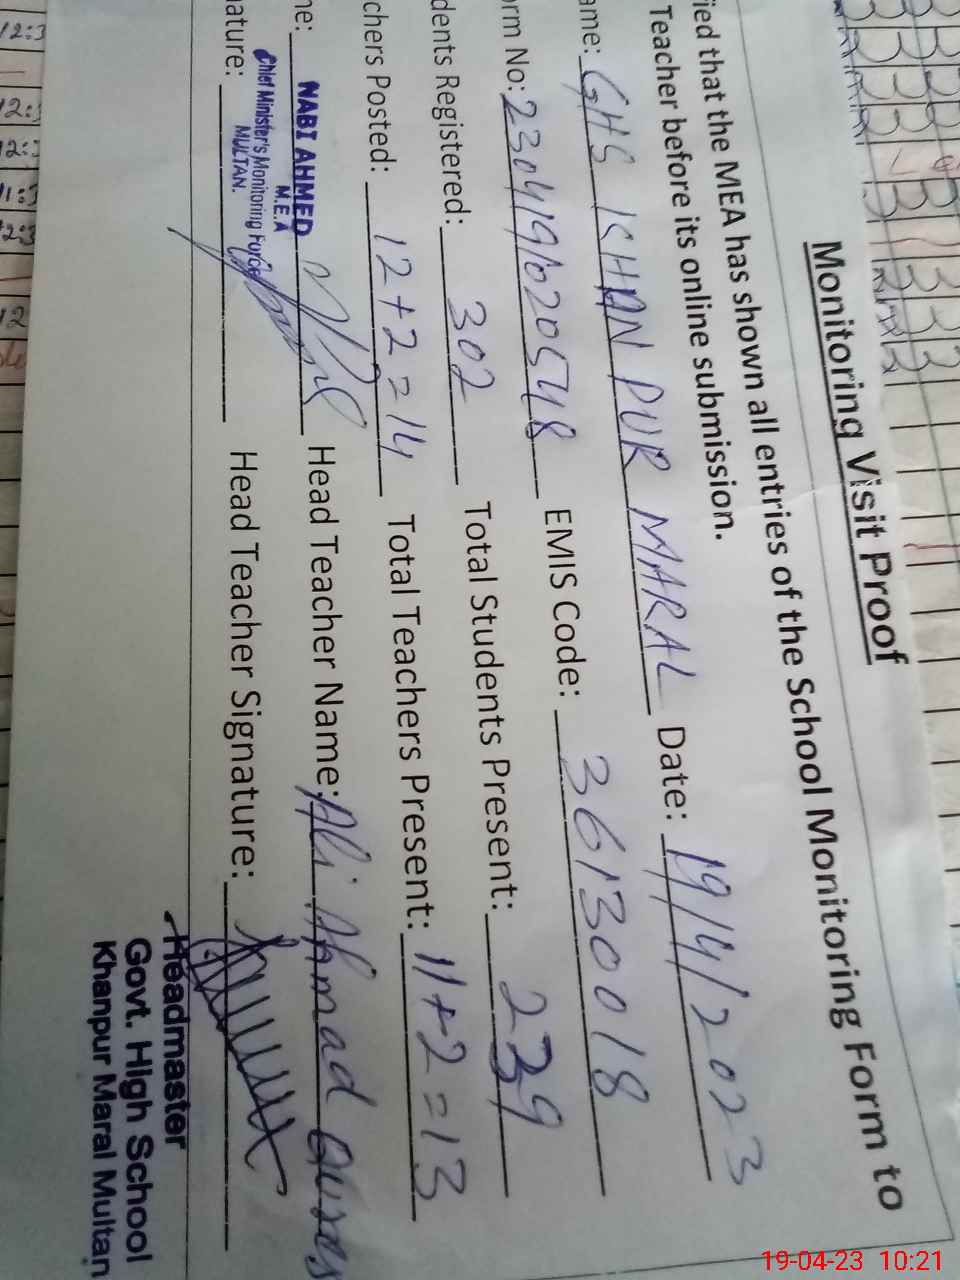 Monitoring Visit Proof
ied that the MEA has shown all entries of the School Monitoring Form to
Teacher before its online submission.
ame: GHS KHAN PUR MARAL Date: 19/4/2023
orm No: 230419020548 EMIS Code: 36130018
dents Registered: 302 Total Students Present: 239
chers Posted: 12+2=14 Total Teachers Present: 11+2=13
ne: NABI AHMED Head Teacher Name: Ali Ahmad
M.E.A
Chief Minister's Monitoring Force
MULTAN.
ature: Head Teacher Signature:
Headmaster
Govt. High School
Khanpur Maral Multan
19-04-23 10:21